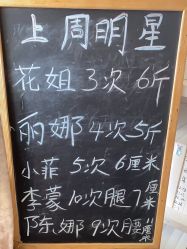 上周明星
花姐3次6斤
丽娜4次5斤
小菲5次6厘米
李蒙10次腿7厘米
陈娜9次腰11厘米